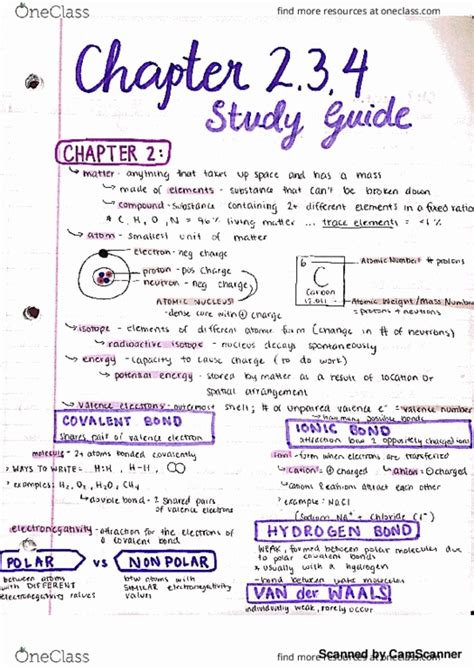 OneClass
find more resources at oneclass.com
Chapter 2.3,4
Study Guide
CHAPTER 2:
matter - anything that takes up space and has a mass
made of elements - substance that can't be broken down
compound - substance containing 2+ different elements in a fixed ratio
* C, H, O, N = 96% living matter ... trace elements = <1%
atom - smallest unit of matter
electron - neg charge
proton - pos charge
neutron - neg charge
ATOMIC NUCLEUS!
- dense core with ⊕ charge
6
C
Carbon
12.011
Atomic Number # protons
Atomic Weight/Mass Number
protons + neutrons
isotope - elements of different atomic form (change in # of neurons)
radioactive isotope - nucleus decays spontaneously
energy - capacity to cause charge (to do work)
potential energy - stored by matter as a result of location or
spatial arrangement
valence electrons - outermost shell; # of unpaired valence e⁻ = valence number
how many possible bonds
COVALENT BOND
shares pair of valence electron
molecule - 2+ atoms bonded covalently
> WAYS TO WRITE = H:H, H-H,
> examples: H₂, O₂, H₂O, CH₄
double bond - 2 shared pairs
of valence electrons
electronegativity - attraction for the electrons of
a covalent bond
POLAR
between atoms
with DIFFERENT
electronegativity values
VS
NONPOLAR
btw atoms with
SIMILAR electronegativity
values
IONIC BOND
attraction btw 2 oppositely charged ions
ion - form when electrons are transferred
cation = ⊕ charged
anion ⊖ charged
cations & anions attract each other
> example: NaCl
(Sodium Na⁺ + Chloride Cl⁻)
HYDROGEN BOND
WEAK, formed between polar molecules due
to polar covalent bonds
* usually with a hydrogen
- bond between water molecules
VAN der WAALS
individually weak, rarely occur
Scanned by CamScanner
OneClass
find more resources at oneclass.com